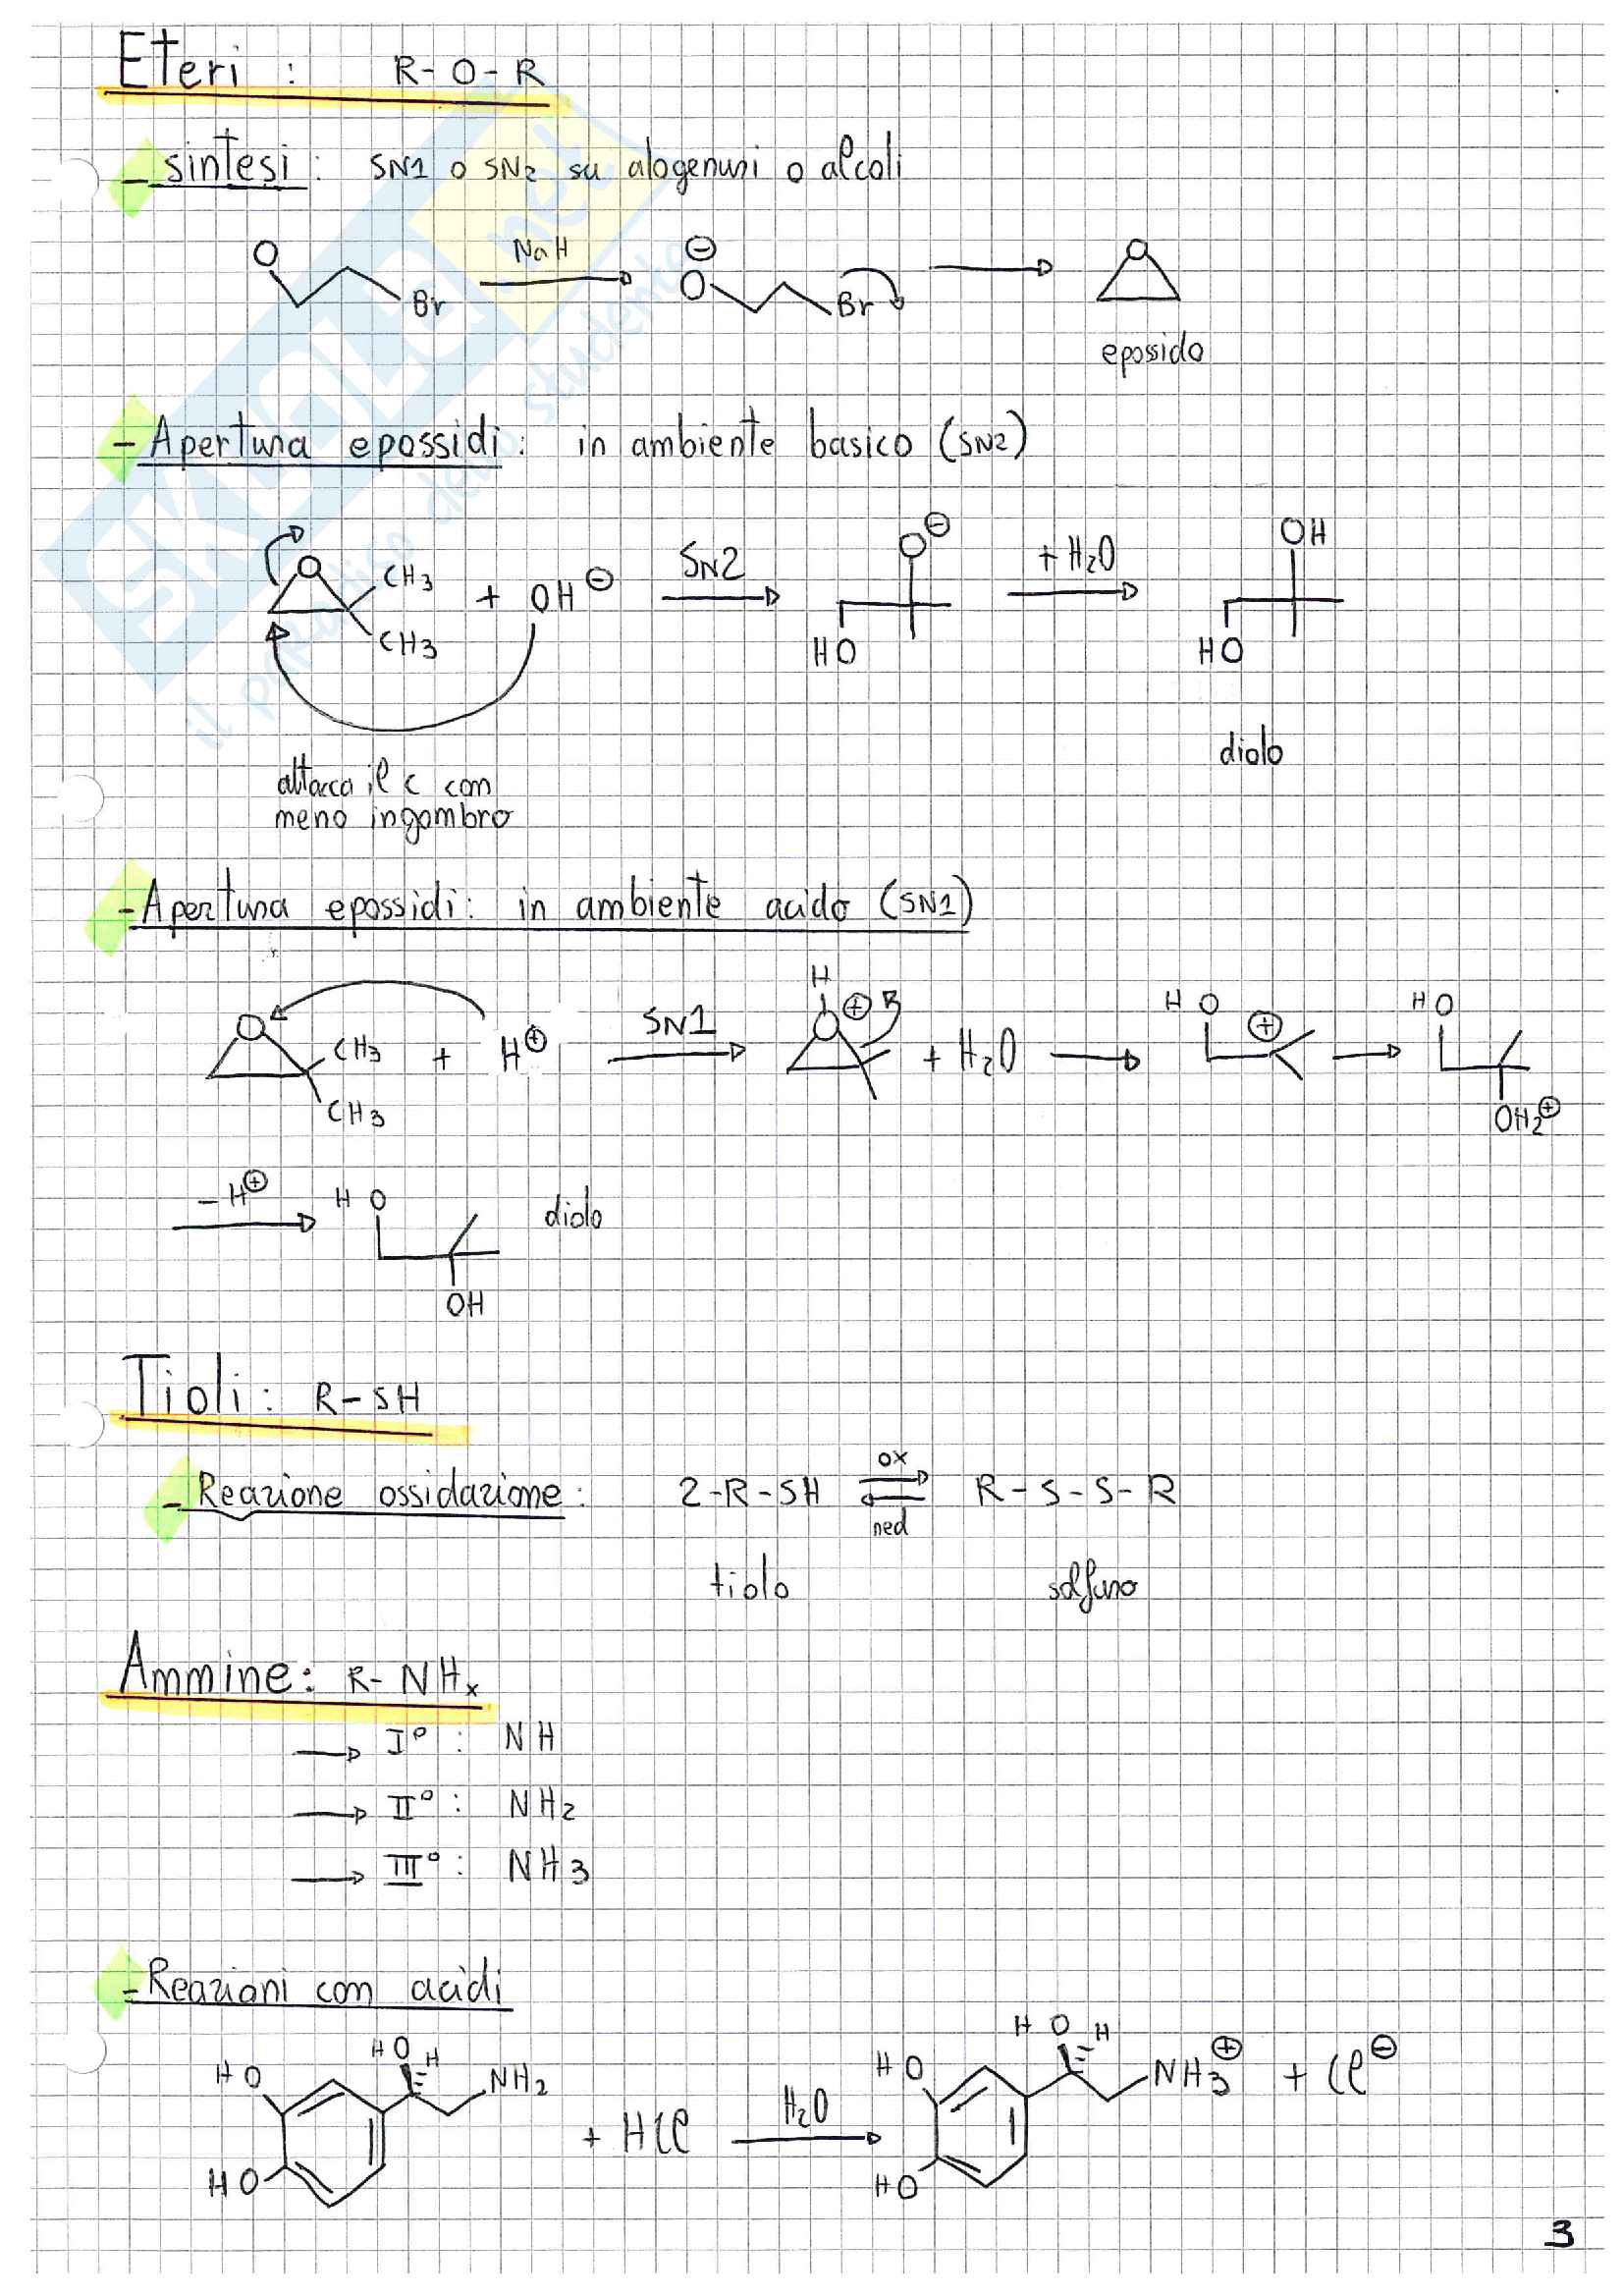 Eteri : R-O-R
- sintesi : SN1 o SN2 su alogenuri o alcoli
O Br NaH O ⊖ Br O
epossido
- Apertura epossidi : in ambiente basico (SN2)
O CH3 CH3 + OH ⊖ SN2 O ⊖ HO + H2O OH HO
diolo
attacca il c con
meno ingombro
- Apertura epossidi : in ambiente acido (SN1)
O CH3 CH3 + H ⊕ SN1 H O ⊕ + H2O HO ⊕ HO OH2 ⊕
- H ⊕ HO OH diolo
Tioli : R-SH
- Reazione ossidazione : 2-R-SH ox red R-S-S-R
tiolo solfuro
Ammine : R-NHx
I° : NH
II° : NH2
III° : NH3
- Reazioni con acidi
HO HO HO H NH2 + HCl H2O HO HO HO H NH3 ⊕ + Cl ⊖
3
SKUOLA.net
il paradiso dello studente